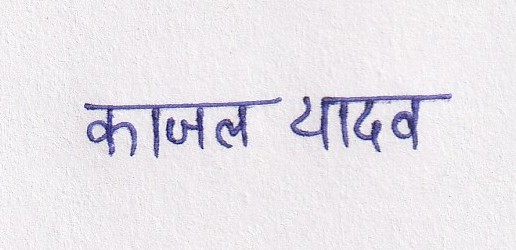 काजल यादव